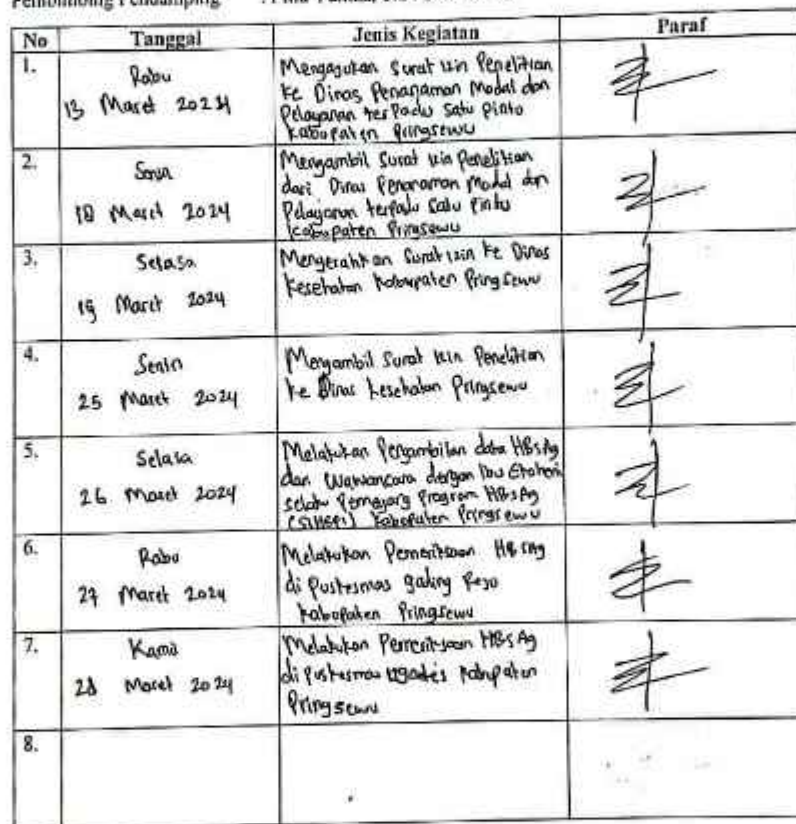 Pembimbing Pendamping :
No Tanggal Jenis Kegiatan Paraf
1.
Rabu
13 Maret 2024
Mengajukan Surat izin Penelitian
ke Dinas Penanaman Modal dan
Pelayanan terpadu Satu Pintu
Kabupaten Pringsewu
2.
Senin
18 Maret 2024
Mengambil Surat izin Penelitian
dari Dinas Penanaman Modal dan
Pelayanan terpadu Satu Pintu
Kabupaten Pringsewu
3.
Selasa
19 Maret 2024
Mengerahkan Surat izin ke Dinas
Kesehatan Kabupaten Pringsewu
4.
Senin
25 Maret 2024
Mengambil Surat izin Penelitian
ke Dinas Kesehatan Pringsewu
5.
Selasa
26 Maret 2024
Melakukan Pengambilan data HBsAg
dan Wawancara dengan Ibu
selaku Pemegang Program HBsAg
Kabupaten Pringsewu
6.
Rabu
27 Maret 2024
Melakukan Pemeriksaan HBsAg
di Puskesmas gading Rejo
Kabupaten Pringsewu
7.
Kamis
28 Maret 2024
Melakukan Pemeriksaan HBsAg
di Puskesmas Kabupaten
Pringsewu
8.